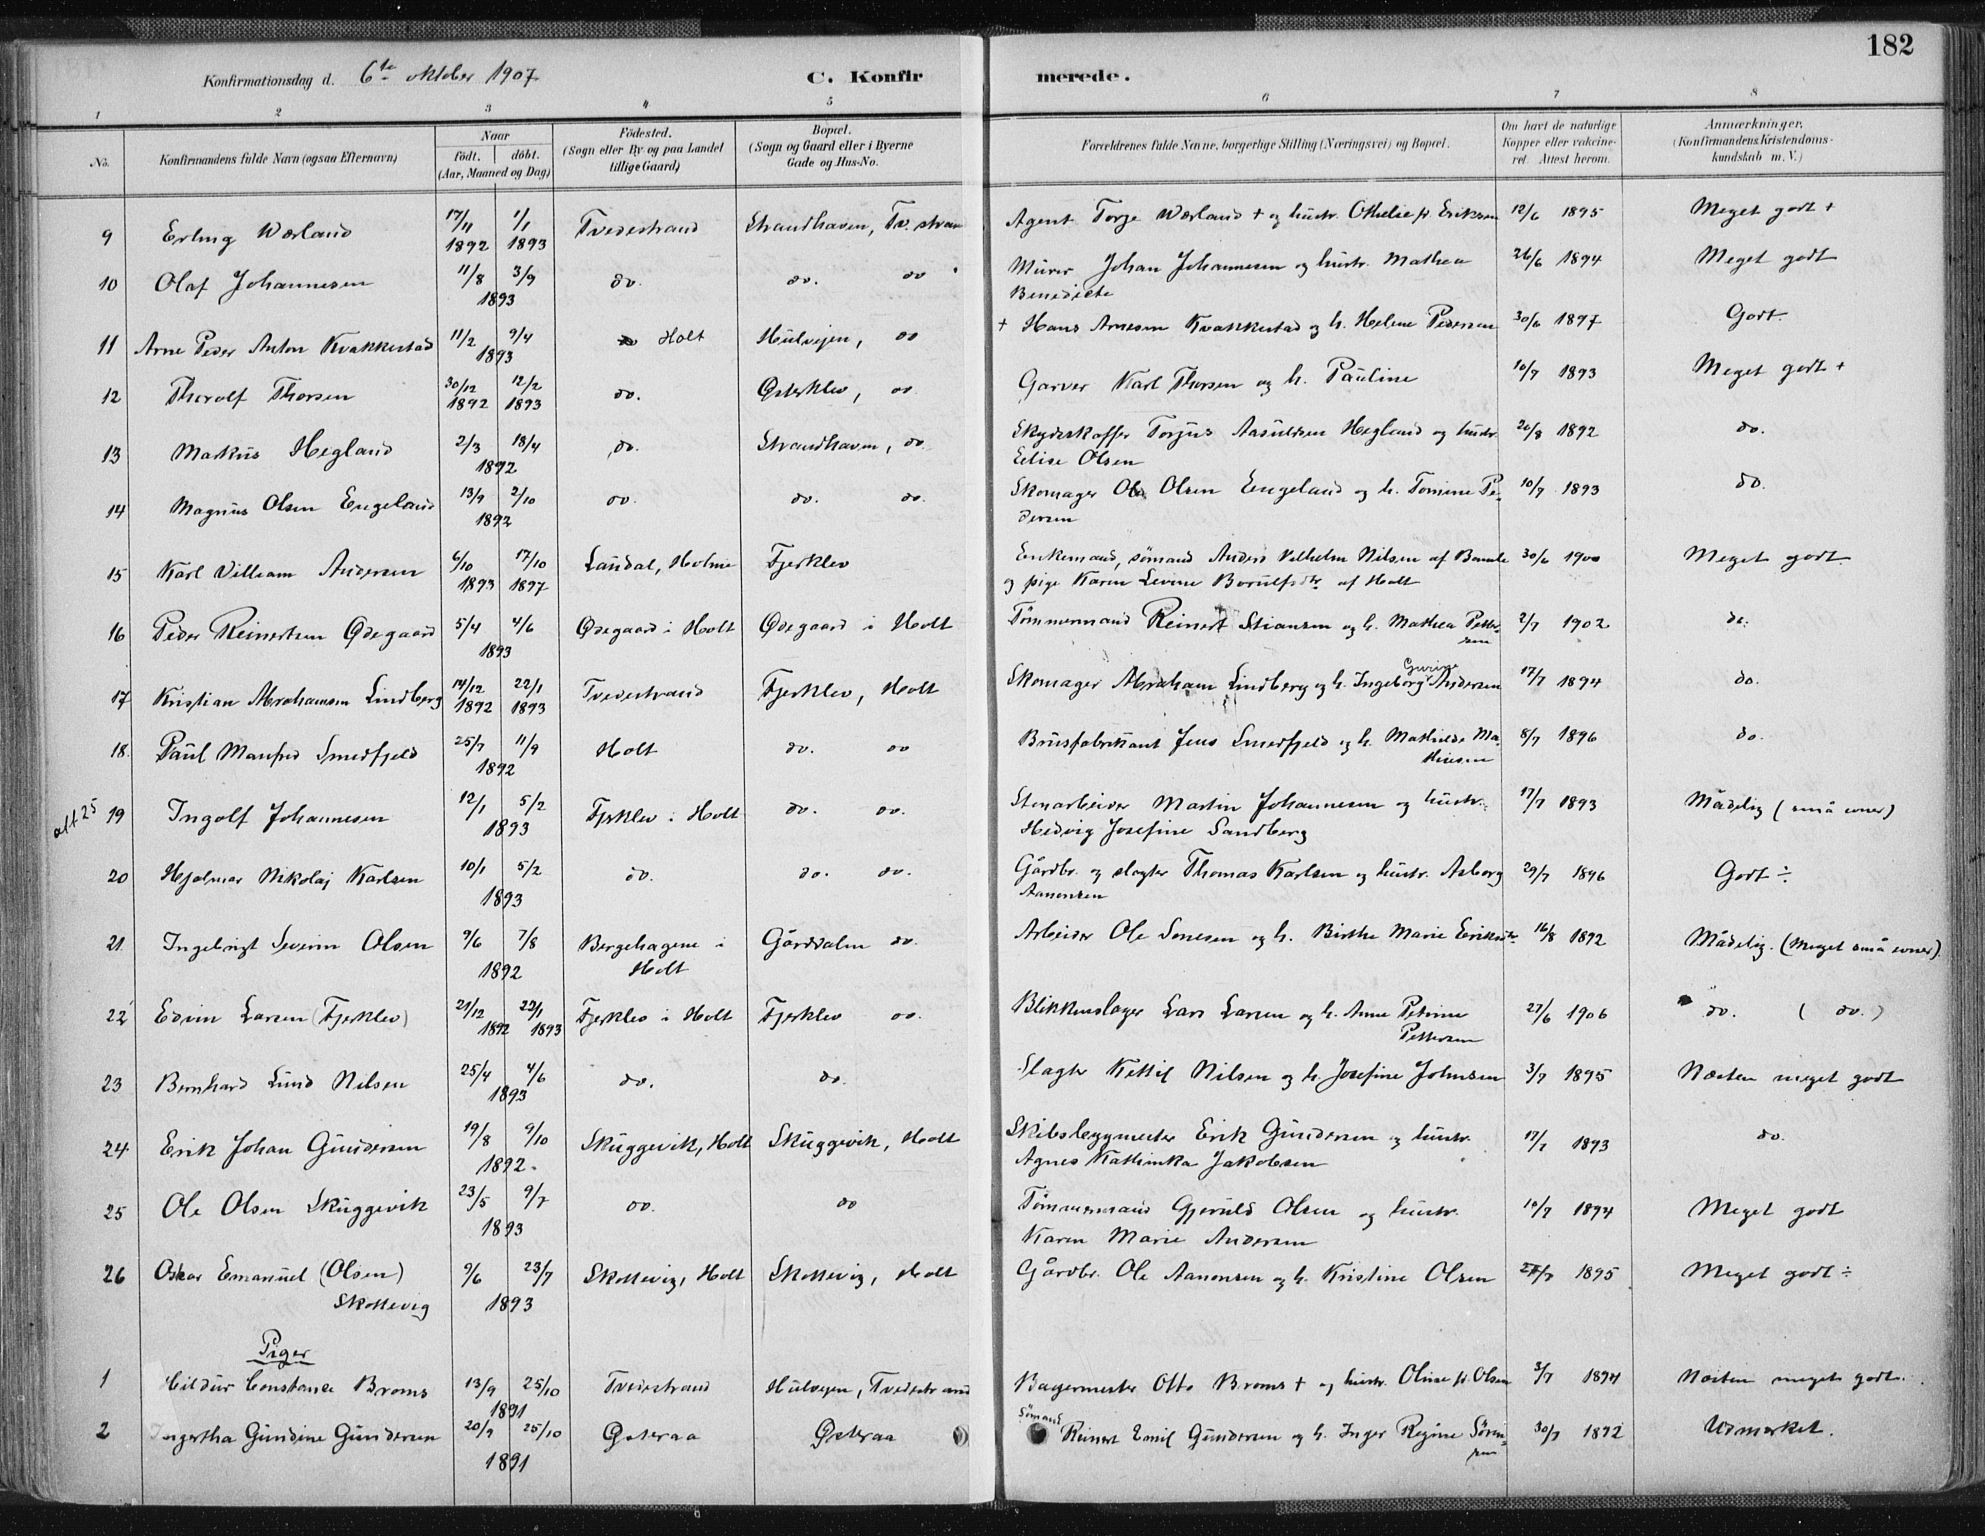 182
Konfirmationsdag d. 6te oktober 1907. C. Konfirmerede.
1 2 3 4 5 6 7 8
No. Konfirmandens fulde Navn (ogsaa Efternavn) Naar födt. döbt. (Aar, Maaned og Dag) Födested. (Sogn eller By og paa Landet tillige Gaard) Bopæl. (Sogn og Gaard eller i Byerne Gade og Hus-No. Forældrenes fulde Navne, borgerlige Stilling (Næringsvei) og Bopæl. Om havt de naturlige Kopper eller vakcineret. Attest herom. Anmærkninger. (Konfirmandens Kristendomskundskab m. V.)
9 Erling Wærland 17/11 1892 1/1 1893 Tvedestrand Strandhaven, Tv.strand Agent Torje Wærland + og hustr. Othelie f. Eriksen 12/6 1895 Meget godt +
10 Olaf Johannesen 11/8 3/9 1893 do. do. do Murer Johan Johannesen og hustr. Mathea
Benedicte 26/6 1894 Meget godt
11 Arne Peder Anton Kvakkestad 11/2 9/4 1893 Holt Hulvejen, do + Hans Arnesen Kvakkestad og h. Helene Pedersen 30/6 1897 Godt.
12 Thorolf Thorsen 30/12 1892 12/2 1893 do. Østerklev, do Garver Karl Thorsen og h. Pauline 10/7 1893 Meget godt +
13 Markus Hegland 2/3 18/4 1892 do. Strandhaven, do Skydeskaffer Torjus Aasuldsen Hegland og hustr.
Elise Olsen 20/8 1892 do.
14 Magnus Olsen Engeland 13/9 2/10 1892 do do. do. Skomager Ole Olsen Engeland og h. Tomine Pe-
dersen 10/7 1893 do.
15 Karl Villiam Andersen 6/10 1893 17/10 1897 Landal, Holme Fjerklev Enkemand, sömand Anders Vilhelm Nilsen af Bamle
og pige Karen Levine Borulfsdtr af Holt 30/6 1900 Meget godt.
16 Peder Reinertsen Ødegaard 5/4 4/6 1893 Ødegaard i Holt Ødegaard i Holt Tömmermand Reinert Stiansen og h. Mathea Petter-
sen 2/7 1902 do.
17 Kristian Abrahamsen Lindberg 14/12 1892 22/1 1893 Tvedestrand Fjerklev, Holt Skomager Abraham Lindberg og h. Ingeborg Gurine Andersen 17/7 1894 do.
18. Paul Manfred Smedfjeld 25/7 11/9 1892 Holt do. do Brusfabrikant Jens Smedfjeld og h. Mathilde Ma-
thiesen 8/7 1896 do.
19 Ingolf Johannesen 12/1 5/2 1893 Fjerklev i Holt do. do. Stenarbeider Martin Johannesen og hustr.
Hedvig Josefine Sandberg 17/7 1893 Mådelig (små evner)
20 Hjalmar Nikolaj Karlsen 10/1 5/2 1893 do. do. do. Gårdbr. og slagter Thomas Karlsen og hustr. Asborg
Aanonsen 29/7 1896 Godt ÷
21. Ingebrigt Severin Olsen 9/6 7/8 1892 Bergehagene i
Holt Gårddalen do. Arbeider Ole Sonesen og h. Birthe Marie Eriksdtr. 16/8 1892 Mådelig. (Meget små evner).
22 Edvin Larsen (Fjerklev) 21/12 1892 22/1 1893 Fjerklev i Holt Fjerklev do. Blikkenslager Lars Larsen og h. Anne Petrine
Pettersen 27/6 1906 do. ( do. )
23 Bernhard Lund Nilsen 25/4 4/6 1893 do. do. Slagter Kettil Nilsen og h. Josefine Johnsen 3/7 1895 Næsten meget godt
24 Erik Johan Gundersen 19/8 9/10 1892. Skuggevik, Holt Skuggevik, Holt Skibsbyggmester Erik Gundersen og hustr.
Agnes Kathinka Jakobsen 17/7 1893 do.
25 Ole Olsen Skuggevik 23/5 9/7 1893 do. do Tömmermand Gjeruld Olsen og hustr.
Karen Marie Andersen 10/7 1894 Meget godt
26 Oskar Emanuel (Olsen)
Skottevig 9/6 23/7 1893 Skottevig, Holt Skottevig, Holt Gårdbr. Ole Aanonsen og h. Kristine Olsen 1895 Meget godt ÷
Piger
1 Hildur Constance Broms 13/9 25/10 1891 Tvedestrand Hulvejen, Tvedestrand Bagermester Otto Broms + og hustr. Oline f. Olsen 3/7 1894 Næsten meget godt.
2 Ingertha Gundine Gundersen 20/9 25/10 1891 Østeraa Østeraa Sömand Reinert Emil Gundersen og h. Inger Regine Sören-
sen 30/7 1892 Udmærket.